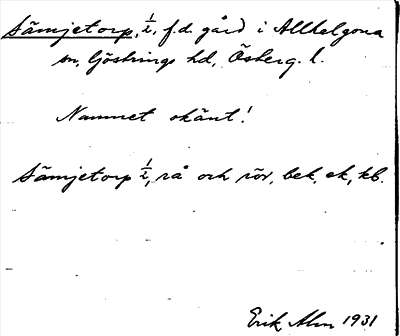 Sämjetorp, 1/2, f.d. gård i Allhelgona
sn, Göstrings hd, Österg. l.
Namnet okänt!
Sämjetorp 1/2, rå och rör, bek, ek, kb.
Erik Alm 1931